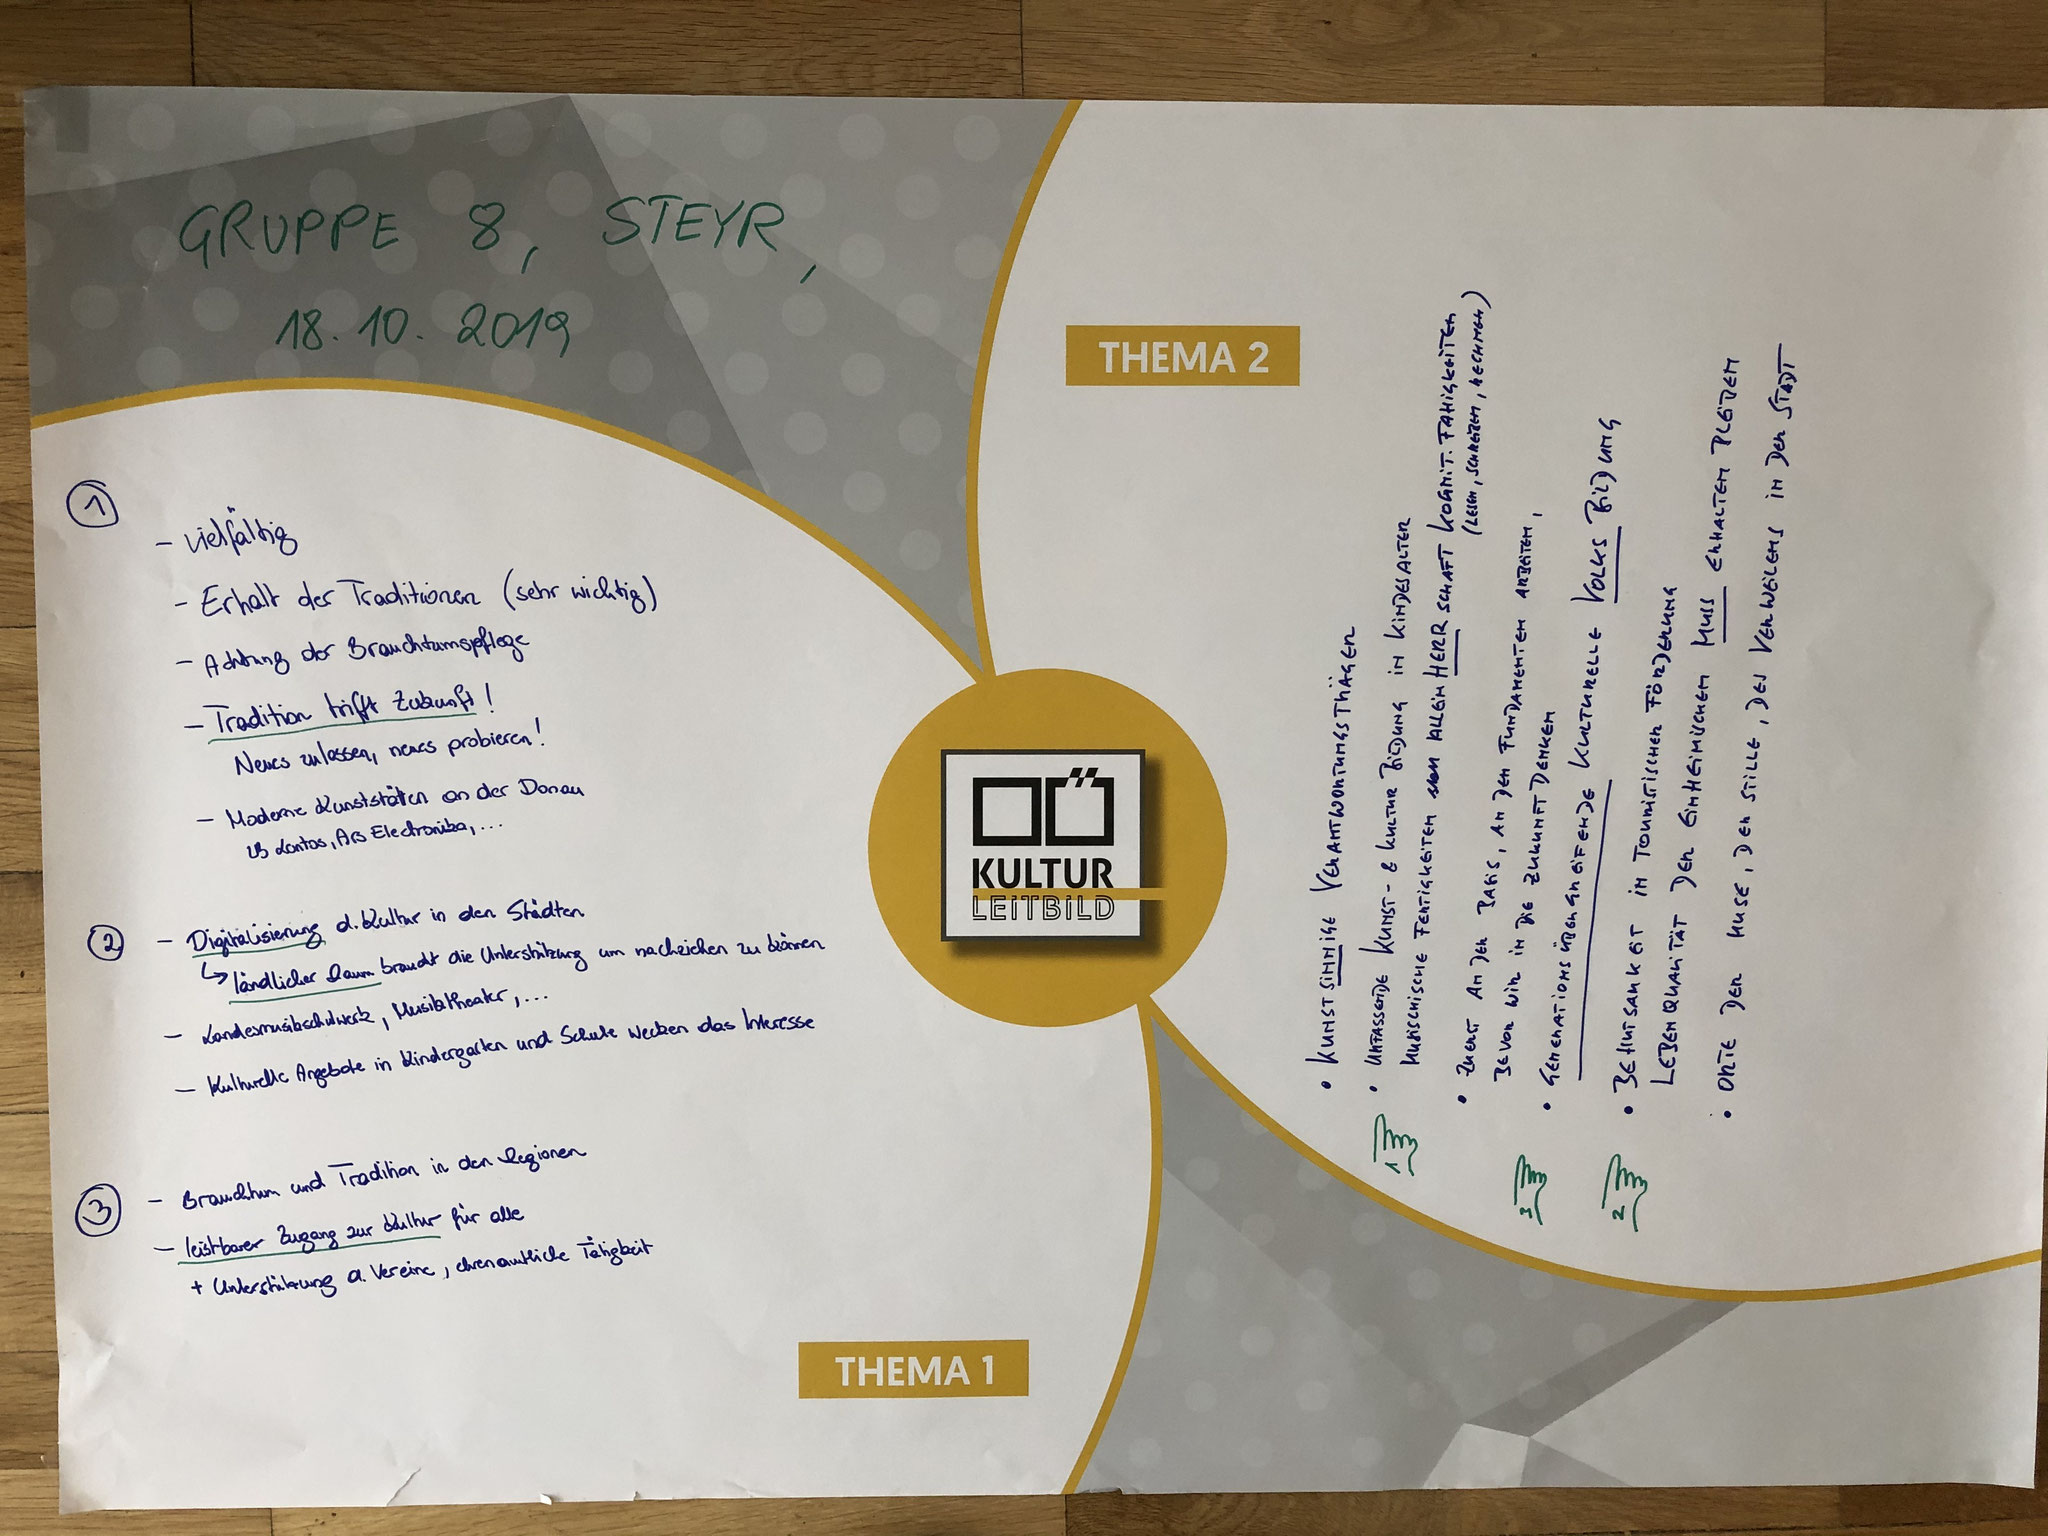 GRUPPE 8, STEYR,
18.10.2019
1
- vielfältig
- Erhalt der Traditionen (sehr wichtig)
- Achtung der Brauchtumspflege
- Tradition trifft Zukunft!
Neues zulassen, neues probieren!
- Moderne Kunststätten an der Donau
zB Lentos, Ars Electronika,...
2
- Digitalisierung d. Kultur in den Städten
↳ ländlicher Raum braucht die Unterstützung um nachziehen zu können
- Landesmusikschulwerk, Musiktheater,...
- Kulturelle Angebote in Kindergarten und Schule wecken das Interesse
3
- Brauchtum und Tradition in den Regionen
- leistbarer Zugang zur Kultur für alle
+ Unterstützung d. Vereine, ehrenamtliche Tätigkeit
THEMA 1
OÖ
KULTUR
LEITBILD
THEMA 2
• KUNSTSINNIGE VERANTWORTUNGSTRÄGER
• UMFASSENDE KUNST- & KULTUR BILDUNG IN KINDESALTER
MUSISCHE FERTIGKEITEN ALLEINHERRSCHAFT KOGNIT. FÄHIGKEITEN
(LESEN, SCHREIBEN, RECHNEN)
• ZUERST AN DER BASIS, AN DEN FUNDAMENTEN ARBEITEN,
BEVOR WIR IN DIE ZUKUNFT DENKEN
• GENERATIONSÜBERGREIFENDE KULTURELLE VOLKSBILDUNG
• BEHUTSAMKEIT IN TOURISTISCHER FÖRDERUNG
LEBENQUALITÄT DER EINHEIMISCHEN MUSS ERHALTEN BLEIBEN
• ORTE DER MUSE, DER STILLE, DES VERWEILENS IN DER STADT
1
3
2